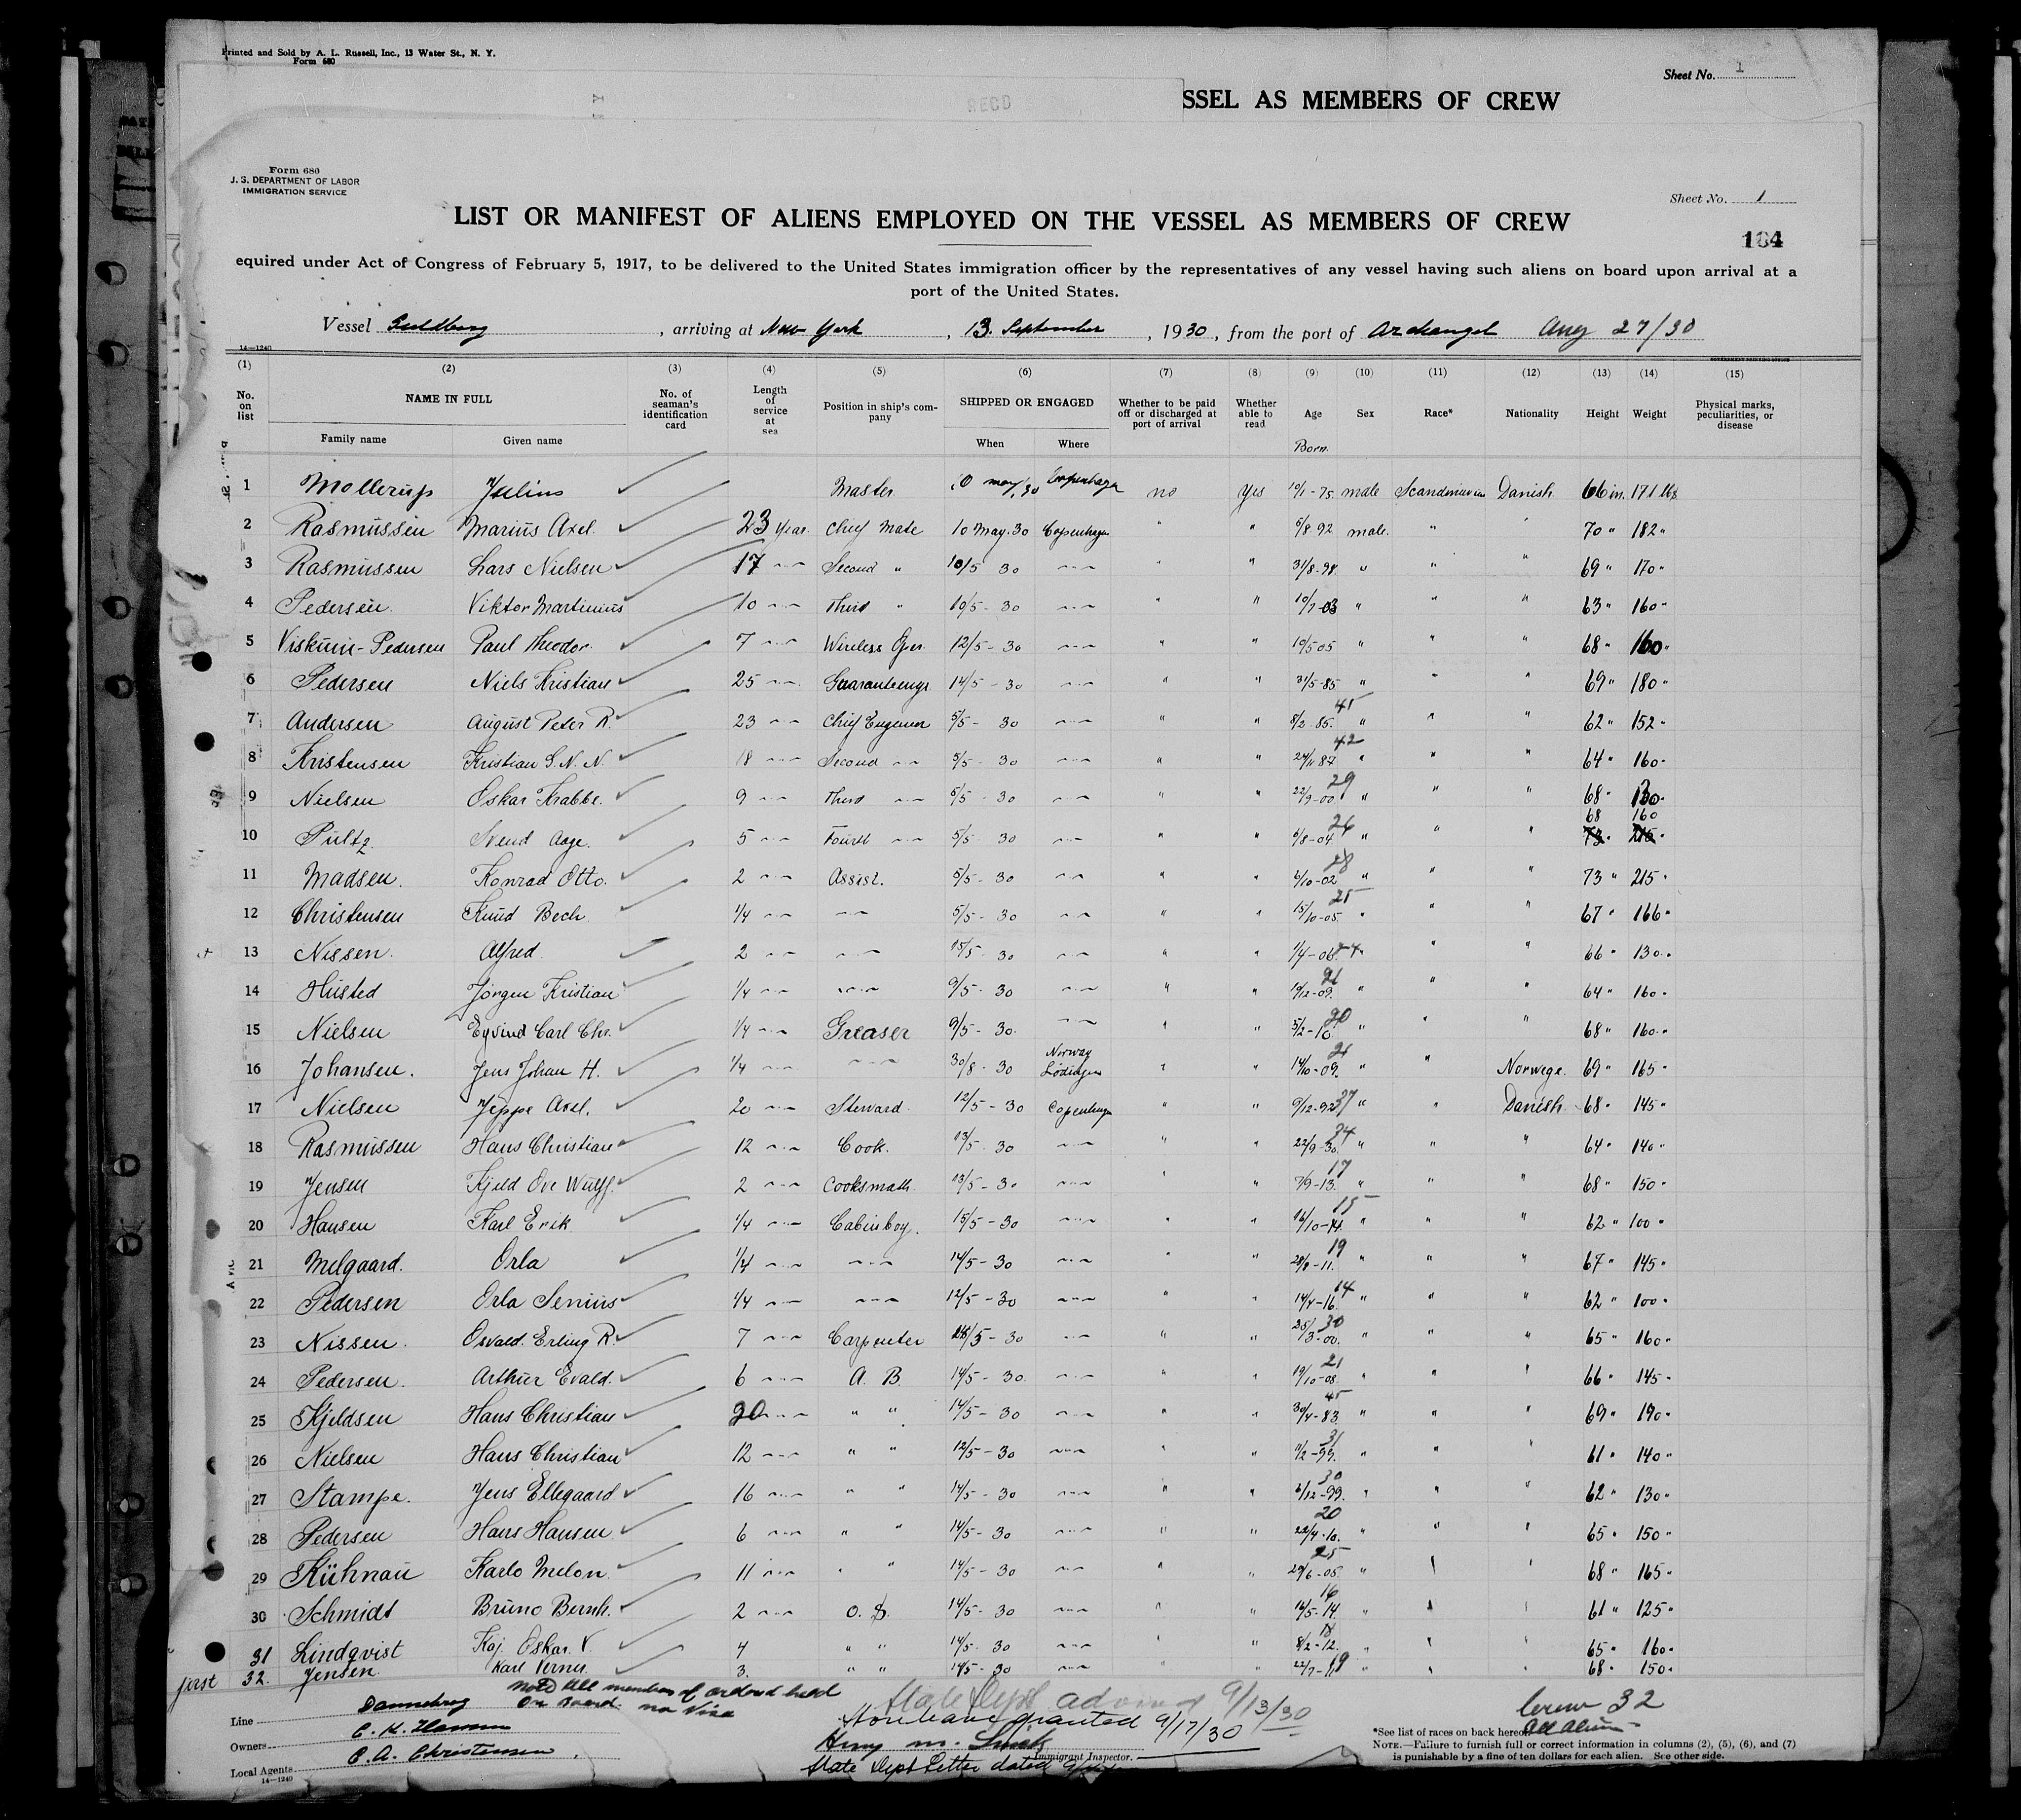 Printed and Sold by A. L. Russell, Inc., 13 Water St., N. Y.
Form 680
Sheet No. 1
SSEL AS MEMBERS OF CREW
RECD
Form 680
J. S. DEPARTMENT OF LABOR
IMMIGRATION SERVICE
Sheet No. 1
LIST OR MANIFEST OF ALIENS EMPLOYED ON THE VESSEL AS MEMBERS OF CREW
104
equired under Act of Congress of February 5, 1917, to be delivered to the United States immigration officer by the representatives of any vessel having such aliens on board upon arrival at a
port of the United States.
Vessel Guldborg, arriving at New York, 13. September, 1930, from the port of Archangel Aug 27/30
14—1240
(1) (2) (3) (4) (5) (6) (7) (8) (9) (10) (11) (12) (13) (14) (15)
No. on list NAME IN FULL Family name Given name No. of seaman's identification card Length of service at sea Position in ship's company SHIPPED OR ENGAGED When Where Whether to be paid off or discharged at port of arrival Whether able to read Age Sex Race* Nationality Height Weight Physical marks, peculiarities, or disease
Born
1 Mollerup Julius Master 10 may, 30 Copenhagen no yes 10/1-75. male Scandinavian Danish 66 in. 171 lbs
2 Rasmussen Marius Axel. 23 Year. Chief Mate 10 May. 30 Copenhagen " " 5/8 92 male. " " 70 " 182 "
3 Rasmussen Lars Nielsen 17 Second " 10/5 30 " " 31/8-98. " " " 69 " 170 "
4 Pedersen. Viktor Martinius 10 Third " 10/5 - 30 " " 10/7-03 " " " 63 " 160 "
5 Viskum-Pedersen Paul Theodor. 7 Wireless Oper. 12/5 - 30 " " 10/5 05 " " " 68 " 160 "
6 Pedersen Niels Kristian 25 Guaranteengr 14/5 - 30 " " 31/5-85 " " " 69 " 180 "
7 Andersen August Peter R. 23 Chief Engineer 5/5 - 30 " " 8/2-85. 45 " " " 62 " 152 "
8 Kristensen Kristian S. N. N. 18 Second 5/5 - 30 " " 24/11 87 42 " " " 64 " 160 "
9 Nielsen Oskar Krabbe. 9 Third 5/5 - 30 " " 22/9-00 29 " " " 68 " 130 "
68 160
10 Pultz Svend Aage. 5 Fourth 5/5 30 " " 6/8-04 26 " " " 73 " 215 "
11 Madsen. Konrad Otto. 2 Assist. 5/5 - 30 " " 6/10-02 28 " " " 73 " 215 "
12 Christensen Knud Bech. 1/4 5/5 - 30 " " 15/10-05. 25 " " " 67 " 166 "
13 Nissen. Alfred 2 15/5 - 30 " " 1/4-06 24 " " " 66 " 130 "
14 Husted Jörgen Kristian 1/4 9/5 - 30 " " 19/12-09. 21 " " " 64 " 160 "
15 Nielsen Eyvind Carl Chr. 1/4 Greaser 9/5 - 30. " " 5/2-10 20 " " " 68 " 160 "
16 Johansen. Jens Johan H. 1/4 30/8 - 30 Norway Lödingen " " 14/10-09. 21 " " Norwege. 69 " 165 "
17 Nielsen Jeppe Axel. 20 Steward. 12/5 - 30 Copenhagen " " 9/12-92 37 " " Danish 68 " 145 "
18 Rasmussen Hans Christian 12 Cook. 13/5 - 30 " " 22/9-30. 34 " " " 64 " 140 "
19 Jensen Kjeld Ove Wulff. 2 Cooksmath 13/5 - 30 " " 7/9-13. 17 " " " 68 " 150 "
20 Hansen Karl Erik 1/4 Cabinboy. 15/5 - 30 " " 16/10-14. 15 " " " 62 " 100 "
21 Melgaard. Orla 1/4 14/5 - 30 " " 28/8-11. 19 " " " 67 " 145 "
22 Pedersen Orla Senius 1/4 12/5 - 30 " " 14/4-16. 14 " " " 62 " 100 "
23 Nissen. Osvald. Erling R. 7 Carpenter 28/5 - 30 " " 25/3-00. 30 " " " 65 " 160 "
24 Pedersen. Arthur Evald. 6 A. B 14/5 - 30. " " 19/10-08. 21 " " " 66 " 145 "
25 Kjeldsen Hans Christian 20 " " 14/5 - 30 " " 30/4-83. 45 " " " 69 " 190 "
26 Nielsen Hans Christian 12 " " 12/5 - 30 " " 11/2-99. 31 " " " 61 " 140 "
27 Stampe. Jens Ellegaard 16 " " 14/5 - 30 " " 6/12-99. 30 " " " 62 " 130 "
28 Pedersen Hans Hansen 6 " " 14/5 - 30 " " 22/4-10. 20 " " " 65 " 150 "
29 Kühnau Karlo Melon. 11 " " 14/5 - 30 " " 29/6-05. 25 " " " 68 " 165 "
30 Schmidt Bruno Bernh. 2 O. S. 14/5 - 30 " " 16/5-14. 16 " " " 61 " 125 "
31 Lindqvist Kaj Oskar V. 4 " " 14/5 - 30 " " 8/2-12. 18 " " " 65 " 160 "
first 32. Jensen. Karl Verner. 3. " " 14/5 - 30 " " 22/7-11 19 " " " 68 " 150 "
Note All members of on board. no Visa
State Dept advised 9/13/30
Crew 32
All Aliens
Line Dannebrog
Shore leave granted 9/17/30
Owners C. K. Hansen
Immigrant Inspector.
Local Agents C. A. Christensen
State Dept Letter dated
14—1240
*See list of races on back hereof.
NOTE.—Failure to furnish full or correct information in columns (2), (5), (6), and (7)
is punishable by a fine of ten dollars for each alien. See other side.